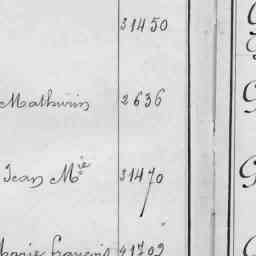 31450
Mathurin 2636
Jean Mie 31470
Marie François 41702